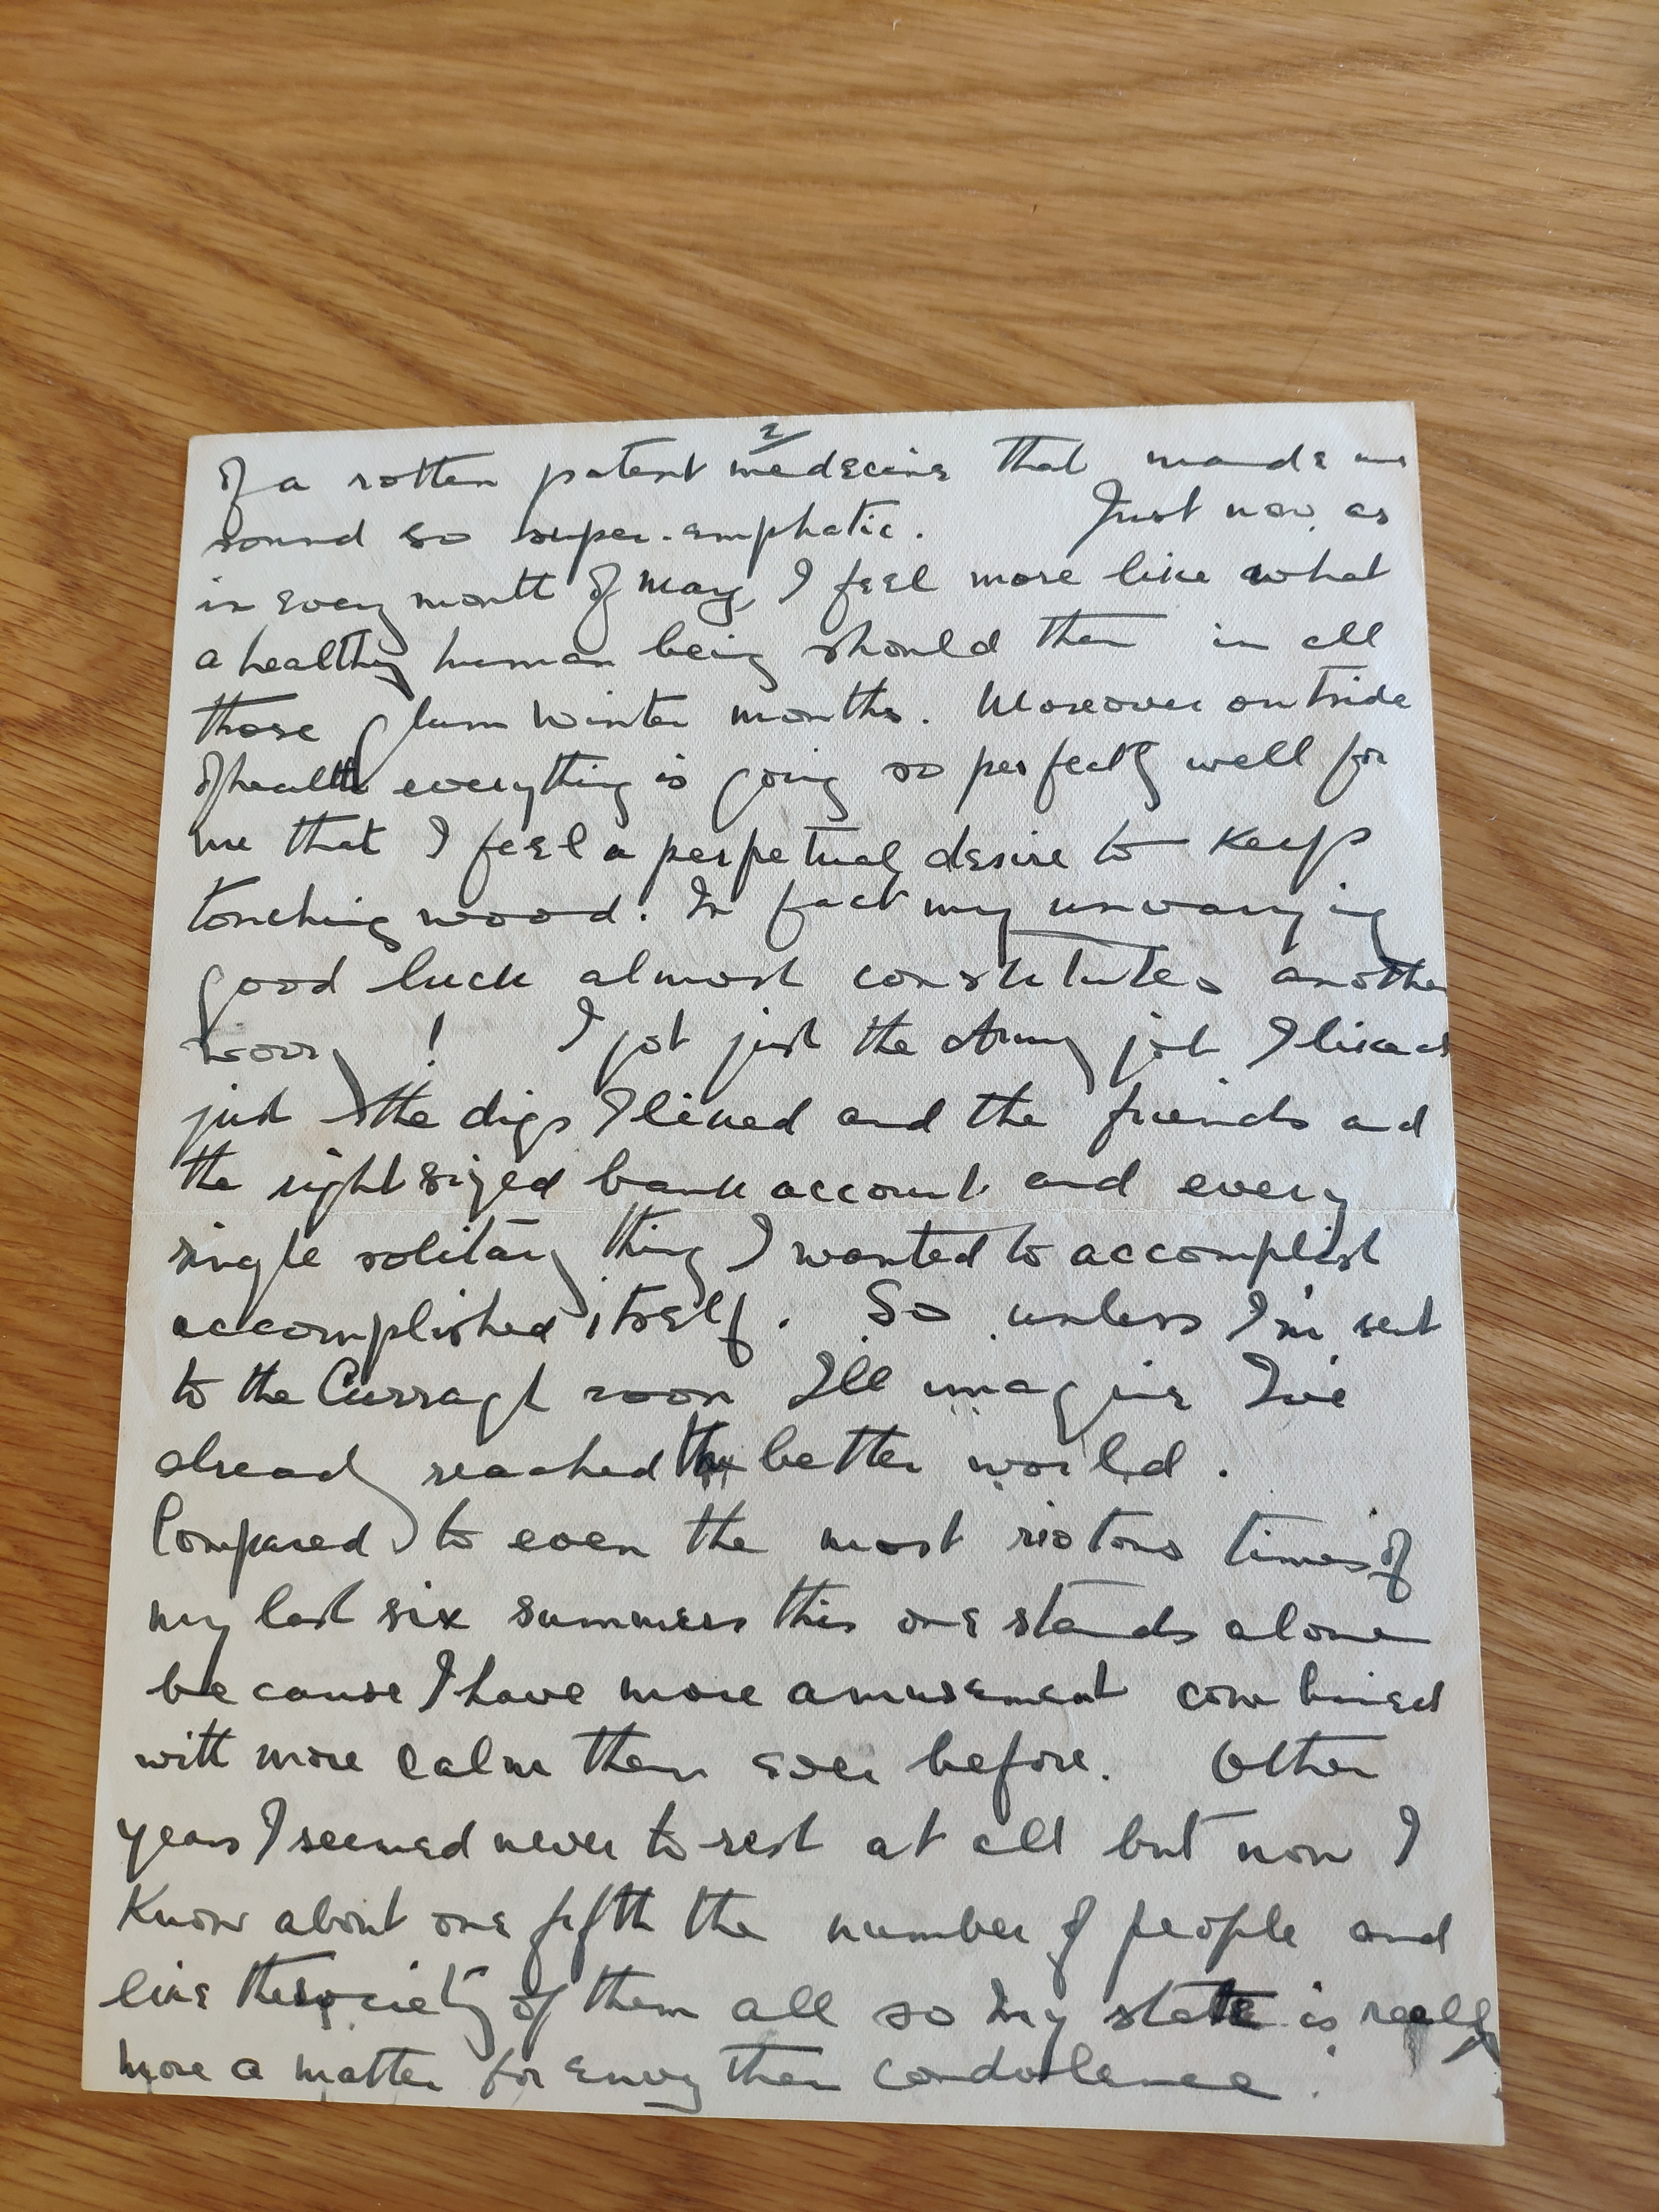 2/
of a rotten patent medecine that made me
sound so super-emphatic. Just now, as
in every month of May, I feel more like what
a healthy human being should than in all
those glum winter months. Moreover outside
of health everything is going so perfectly well for
me that I feel a perpetual desire to keep
touching wood. In fact my unvarying
good luck almost constitutes another
worry! I got just the Army job I liked
just the digs I liked and the friends and
the right sized bank account and every
single solitary thing I wanted to accomplish
accomplished itself. So unless I'm sent
to the Curragh soon I'll imagine I've
already reached the better world.
Compared to even the most riotous times of
my last six summers this one stands alone
because I have more amusement combined
with more calm than ever before. Other
years I seemed never to rest at all but now I
know about one fifth the number of people and
like the society of them all so my state is really
more a matter for envy than condolence.